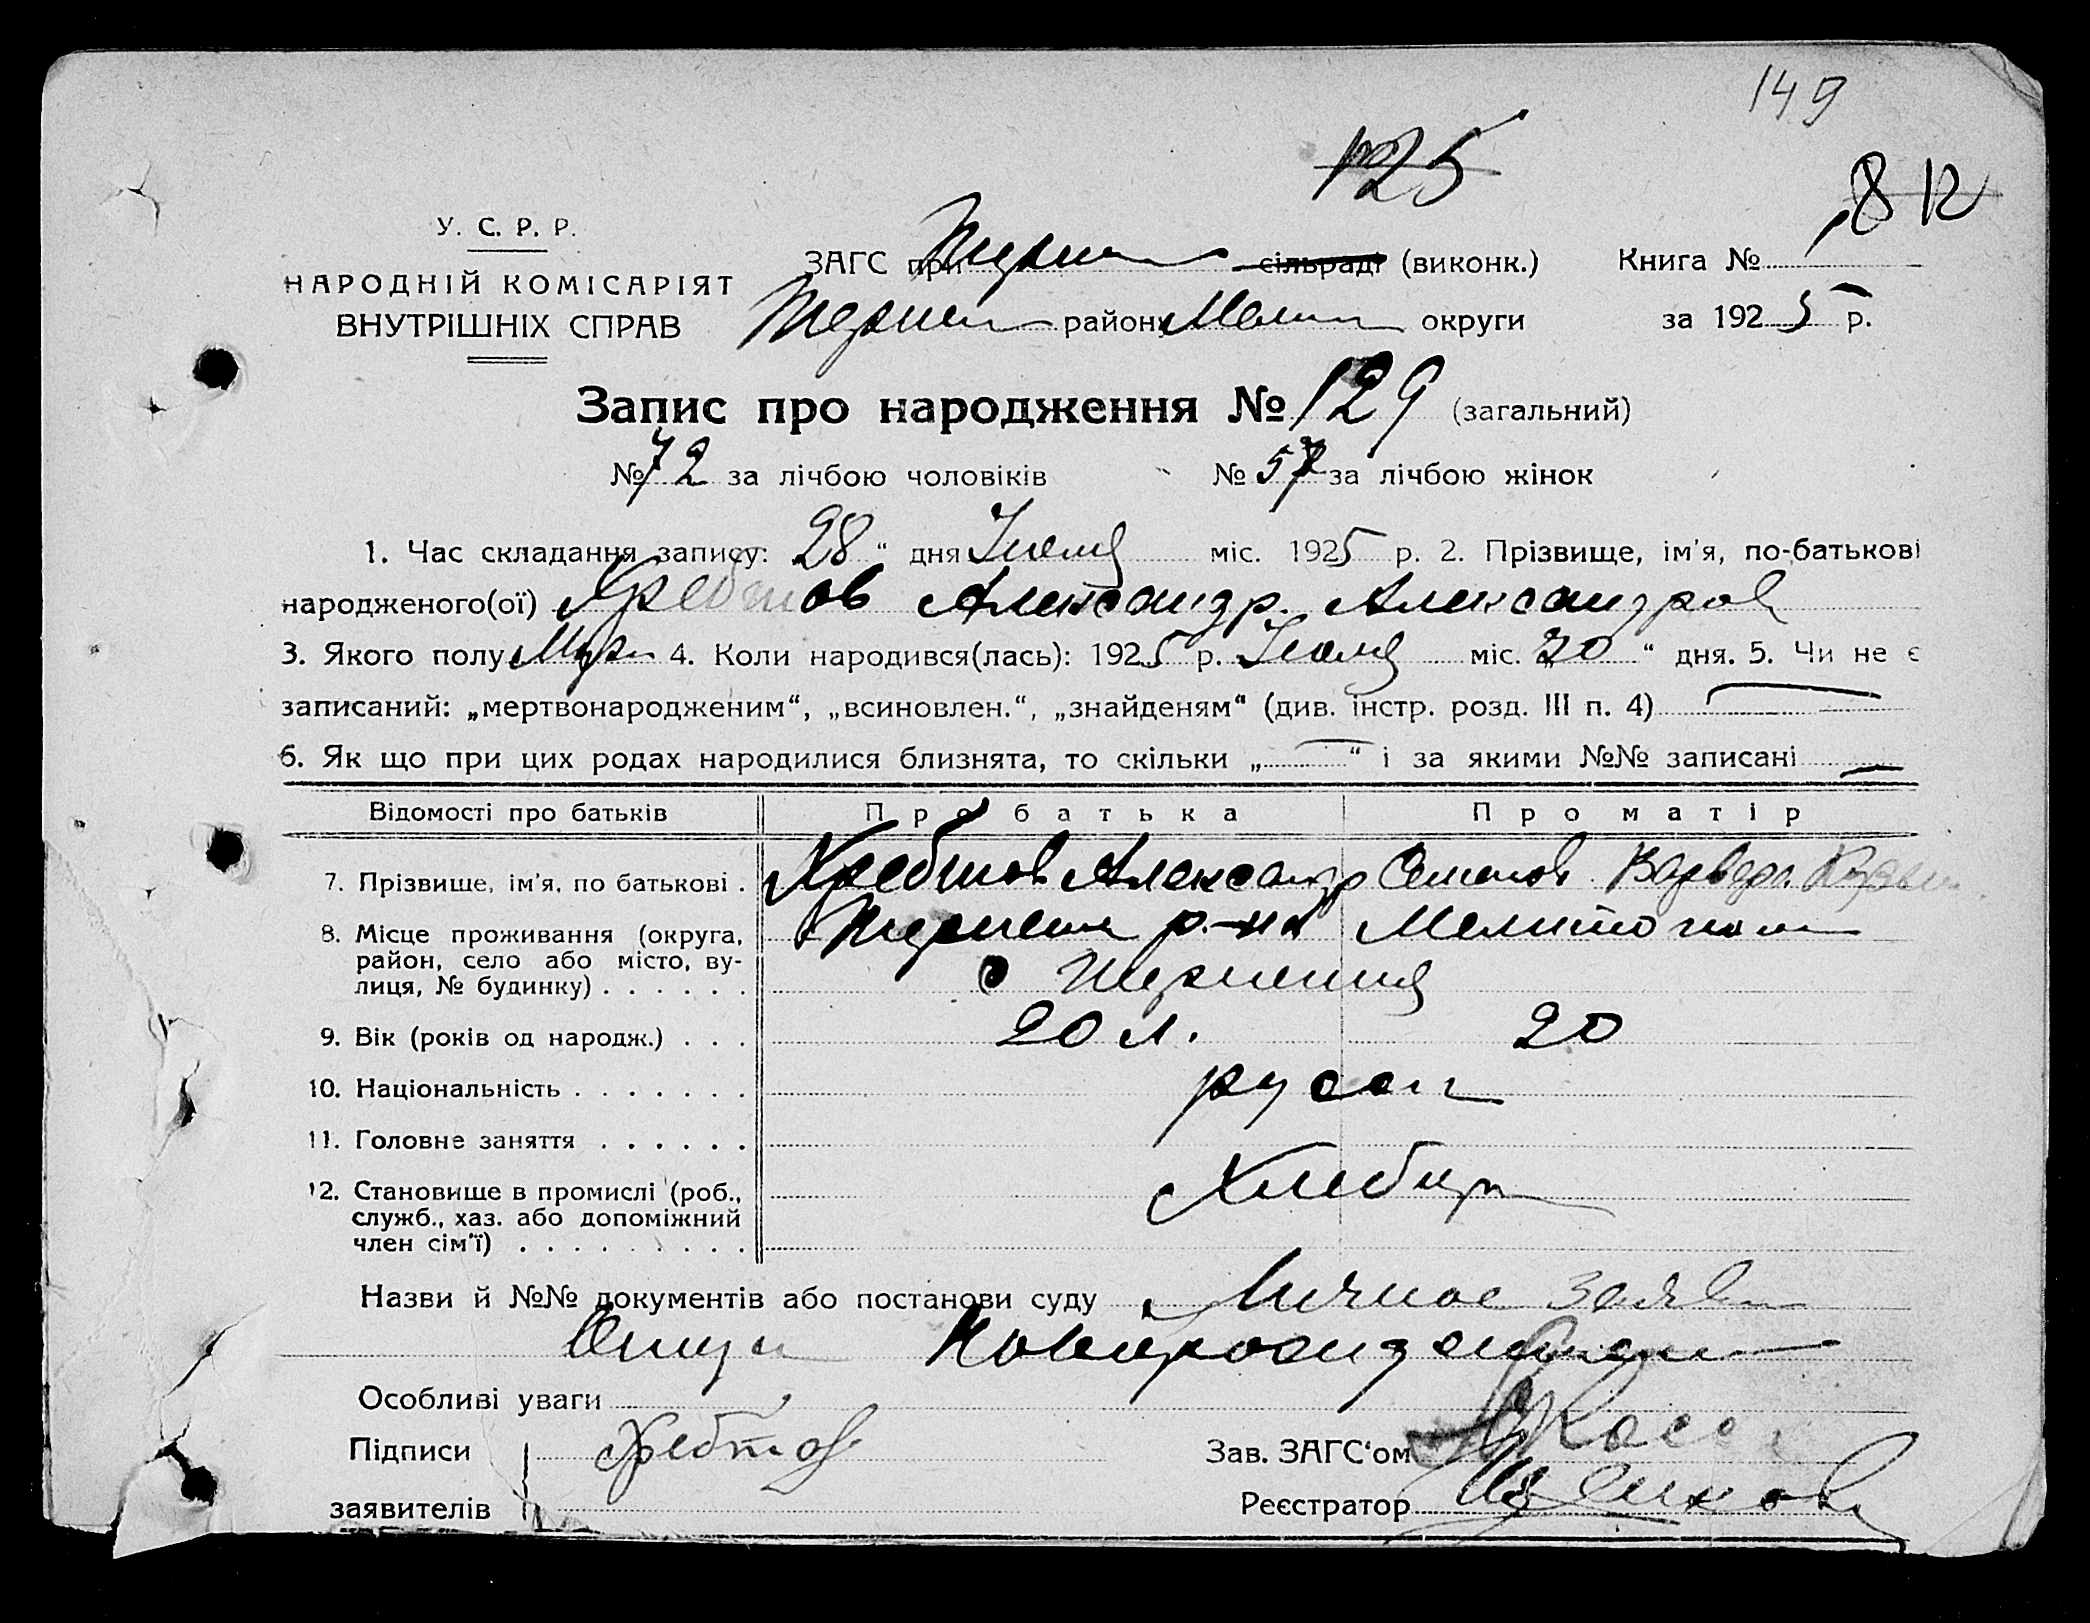 149
125
8 12
У. С. Р. Р.
НАРОДНІЙ КОМІСАРІЯТ
ВНУТРІШНІХ СПРАВ
ЗАГС при сільраді (виконк.) Книга №
район, Мелит округи за 1925 р.
Запис про народження № 129 (загальний)
№ 72 за лічбою чоловіків № 57 за лічбою жінок
1. Час складання запису: 28 “ дня Июля міс. 1925 р. 2. Прізвище, ім’я, по-батькові
народженого(ої) Хребтов Александр. Александров
3. Якого полу Муж 4. Коли народився(лась): 1925 р. Июля міс. „20“ дня. 5. Чи не є
записаний: „мертвонародженим“, „всиновлен.“, „знайденям“ (див. інстр. розд. III п. 4)
6. Як що при цих родах народилися близнята, то скільки „ “ і за якими №№ записані
Відомості про батьків Про батька Про матір
7. Прізвище, ім’я, по батькові . Хребтов Александр Варвара
8. Місце проживання (округа, р-на Мелитопол
район, село або місто, ву-
лиця, № будинку) . . . . . . с
9. Вік (років од народж.) . . . 20 л. 20
10. Національність . . . . . . . русск
11. Головне заняття . . . . . .
12. Становище в промислі (роб., Хлебор
служб., хаз. або допоміжний
член сім’ї) . . . . . . . . .
Назви й №№ документів або постанови суду Личное заявл
Отца
Особливі уваги
Підписи Хребтов Зав. ЗАГС‘ом
заявителів Реєстратор